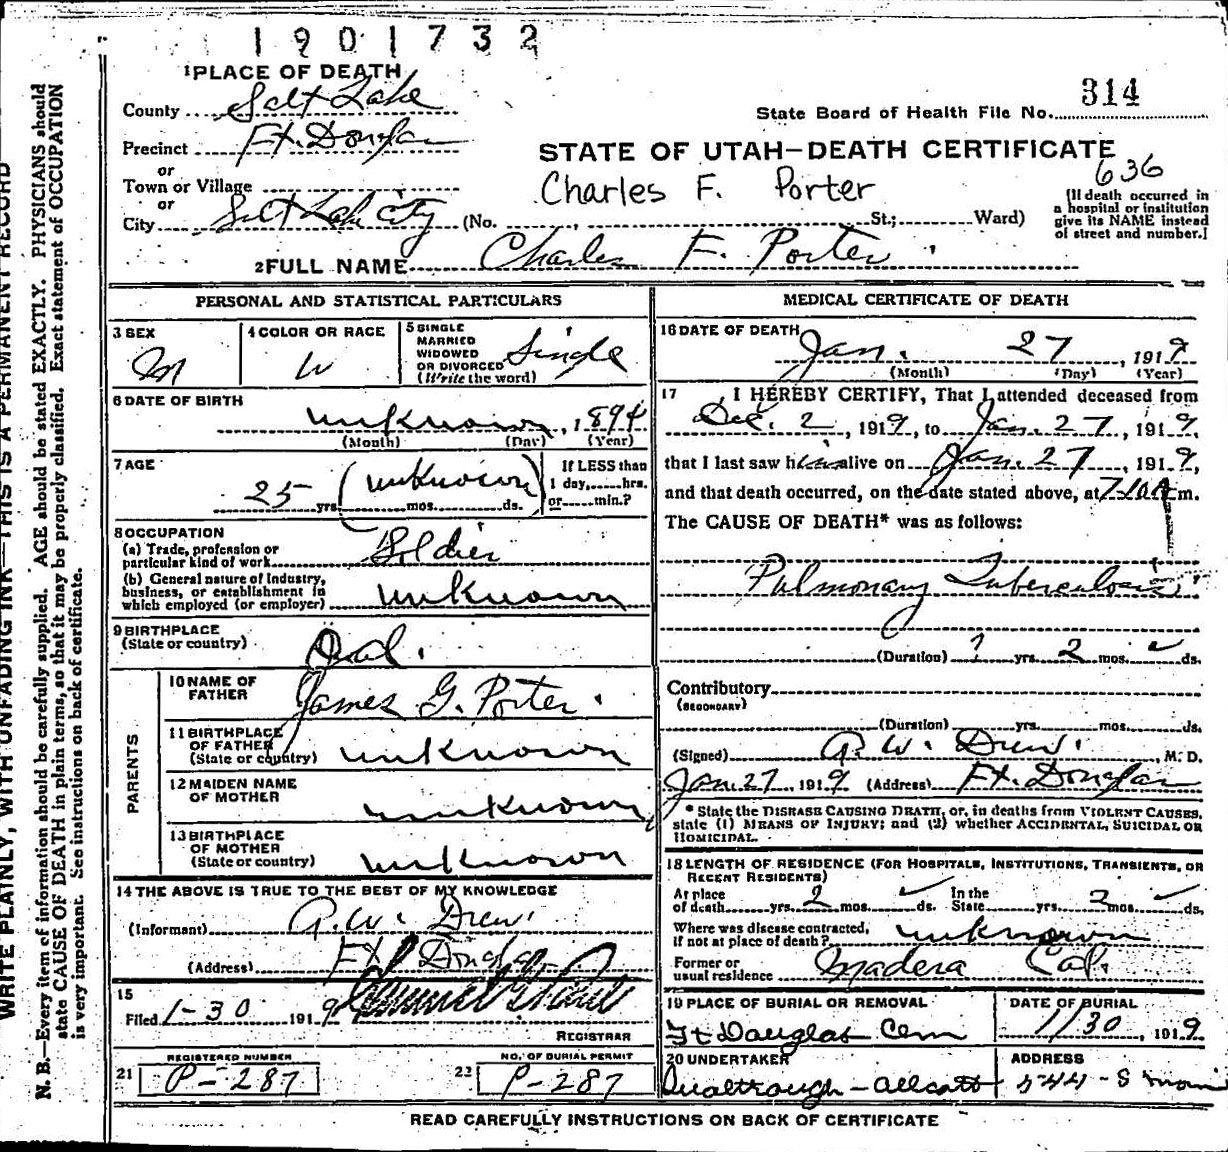 1901732
1 PLACE OF DEATH
County Salt Lake
314
State Board of Health File No.
Precinct Ft. Douglas
STATE OF UTAH—DEATH CERTIFICATE
or
Town or Village
Charles F. Porter
636
or
City Salt Lake City (No. St.; Ward)
[If death occurred in
a hospital or institution
give its NAME instead
of street and number.]
2 FULL NAME Charles F. Porter
PERSONAL AND STATISTICAL PARTICULARS
3 SEX
M
4 COLOR OR RACE
W
5 SINGLE
MARRIED
WIDOWED
OR DIVORCED
(Write the word)
Single
6 DATE OF BIRTH
unknown, 1894
(Month) (Day) (Year)
7 AGE
25 yrs. (unknown) mos. ds.
If LESS than
1 day, hrs.
or min.?
8 OCCUPATION
(a) Trade, profession or
particular kind of work Soldier
(b) General nature of Industry,
business, or establishment in
which employed (or employer) unknown
9 BIRTHPLACE
(State or country)
Cal.
PARENTS
10 NAME OF
FATHER
James G. Porter.
11 BIRTHPLACE
OF FATHER
(State or country) unknown
12 MAIDEN NAME
OF MOTHER unknown
13 BIRTHPLACE
OF MOTHER
(State or country) unknown
14 THE ABOVE IS TRUE TO THE BEST OF MY KNOWLEDGE
(Informant) A. W. Drew.
(Address) Ft Douglas
15
Filed 1-30 1919
REGISTRAR
REGISTERED NUMBER
21 P-287
NO. OF BURIAL PERMIT
22 P-287
MEDICAL CERTIFICATE OF DEATH
16 DATE OF DEATH
Jan. 27, 1919
(Month) (Day) (Year)
17 I HEREBY CERTIFY, That I attended deceased from
Dec. 2, 1919, to Jan. 27, 1919,
that I last saw him alive on Jan. 27, 1919,
and that death occurred, on the date stated above, at 7:10 A m.
The CAUSE OF DEATH* was as follows:
Pulmonary Tuberculosis
(Duration) yrs. 2 mos. ds.
Contributory
(SECONDARY)
(Duration) yrs. mos. ds.
(Signed) A. W. Drew. , M. D.
Jan. 27, 1919 (Address) Ft. Douglas
* State the DISEASE CAUSING DEATH, or, in deaths from VIOLENT CAUSES,
state (1) MEANS OF INJURY; and (2) whether ACCIDENTAL, SUICIDAL OR
HOMICIDAL.
18 LENGTH OF RESIDENCE (FOR HOSPITALS, INSTITUTIONS, TRANSIENTS, OR
RECENT RESIDENTS)
At place
of death yrs. 2 mos. ds.
In the
State yrs. 2 mos. ds.
Where was disease contracted,
if not at place of death? unknown
Former or
usual residence Madera Cal.
19 PLACE OF BURIAL OR REMOVAL
Ft Douglas Cem
DATE OF BURIAL
1/30 1919
20 UNDERTAKER
Qualtrough-Allcott
ADDRESS
544-S main
READ CAREFULLY INSTRUCTIONS ON BACK OF CERTIFICATE
WRITE PLAINLY, WITH UNFADING INK—THIS IS A PERMANENT RECORD
N. B.—Every item of information should be carefully supplied. AGE should be stated EXACTLY. PHYSICIANS should
state CAUSE OF DEATH in plain terms, so that it may be properly classified. Exact statement of OCCUPATION
is very important. See instructions on back of certificate.